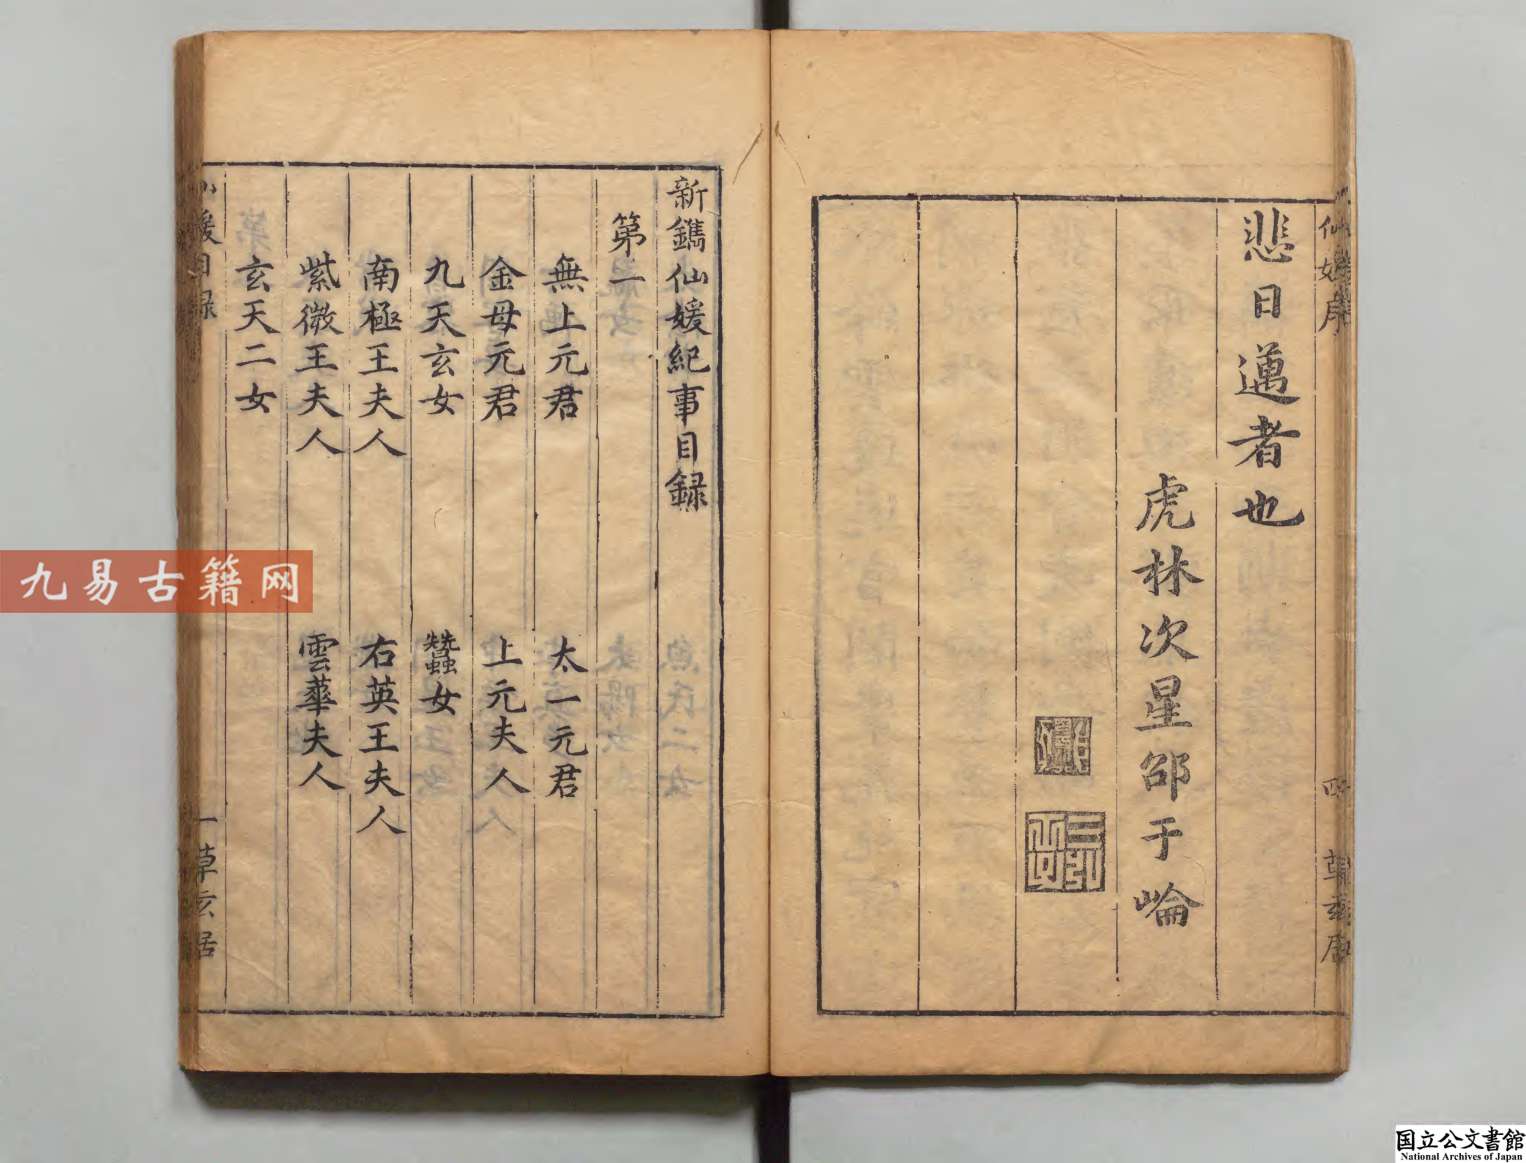 悲日邁者也
虎林次星邵于崙
仙媛序
四
草玄居
新鐫仙媛紀事目録
第一
無上元君
太一元君
金母元君
上元夫人
九天玄女
蠶女
南極王夫人
右英王夫人
紫微王夫人
雲華夫人
玄天二女
仙媛目録
一
草玄居
九易古籍网
国立公文書館
National Archives of Japan